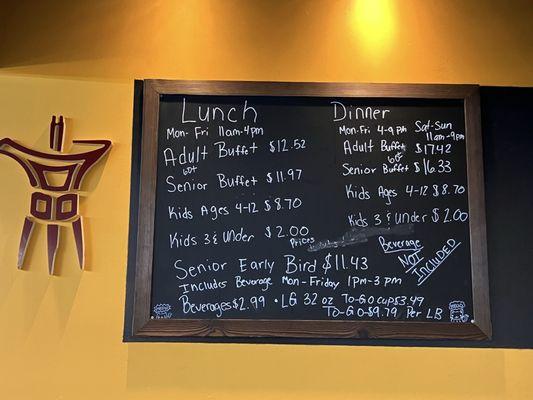 Lunch
Mon-Fri 11am-4pm
Adult Buffet $12.52
Senior Buffet $11.97
Kids Ages 4-12 $8.70
Kids 3 & Under $2.00
Dinner
Mon-Fri 4-9pm Sat-Sun 11am-9pm
Adult Buffet $17.42
Senior Buffet $16.33
Kids Ages 4-12 $8.70
Kids 3 & Under $2.00
Prices
Beverage
NOT
Included
Senior Early Bird $11.43
Includes Beverage Mon-Friday 1pm-3pm
Beverages $2.99 • LG 32 oz To-Go cup $3.49
To-Go $9.79 Per LB